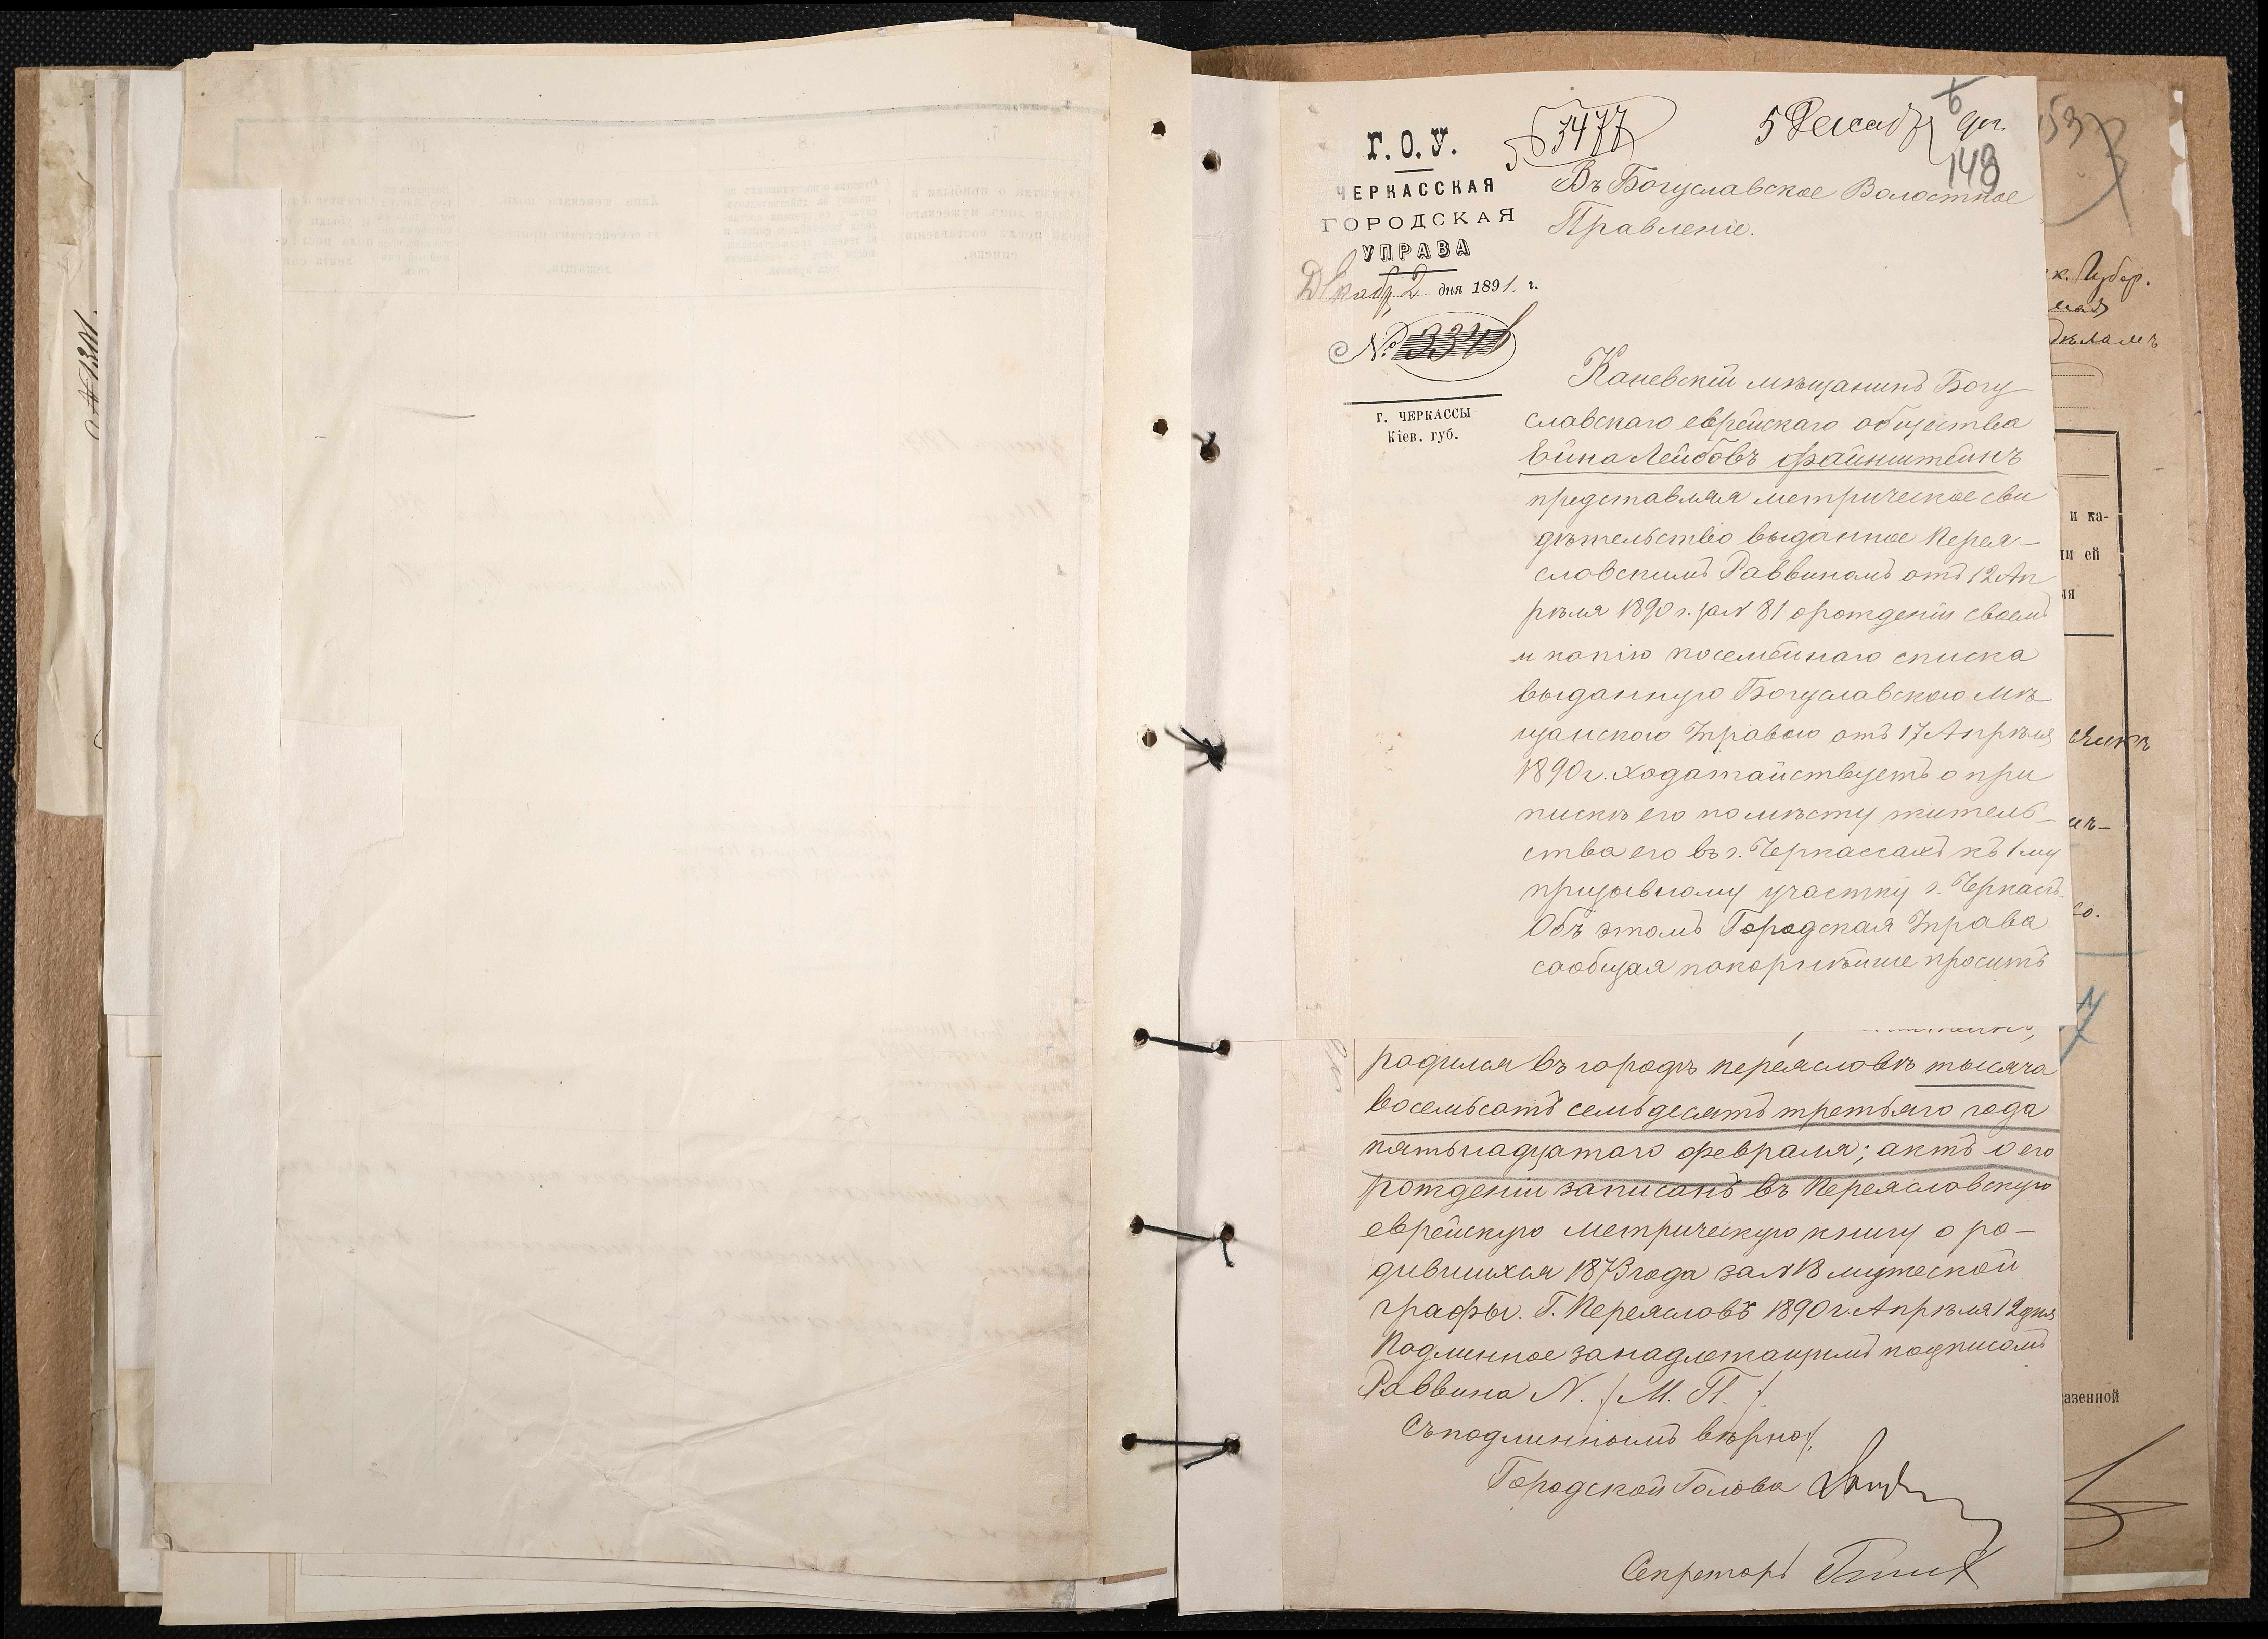 № 1301.
3477
5 Декабр
6
149
Г. О. У.
ЧЕРКАССКАЯ
ГОРОДСКАЯ
УПРАВА
Декабр 2 дня 1891. г.
№ 3341
Г. ЧЕРКАССЫ
Кіев. губ.
Въ Богуславское Волостное
Правленіе.
Каневскій мѣщанинъ Богу
славскаго еврейскаго общества
Ейна Лейбовъ Файнштейнъ
представляя метрическое сви
дѣтельство выданное Перея-
словскимъ Раввиномъ отъ 12 Ап
рѣля 1890 г. за № 81 о рожденіи своемъ
и копію посемейнаго списка
выданную Богуславскою Мѣ
щанскою Управою отъ 17 Апрѣля
1890 г. ходатайствуетъ о при
пискѣ его по мѣсту житель-
ства его въ г. Черкассахъ къ 1му
призывному участку г. Черкасъ.
Объ этомъ Городская Управа
сообщая покорнѣйше проситъ
родился въ городѣ Переясловѣ тысяча
восемьсотъ семьдесятъ третьяго года
пятьнадцатаго февраля; актъ о его
рожденіи записанъ въ Переясловскую
еврейскую метрическую книгу о ро-
дившихся 1873 года за № 18 мужеской
графы. Г. Переясловъ 1890 г. Апрѣля 12 дня
Подлинное за надлежащимъ подписомъ
Раввина N. / М. П. /.
Съ подлиннымъ вѣрно:
Городской Голова
Секретарь
153
к. Губер.
и ка-
ли ей
ія
азенной